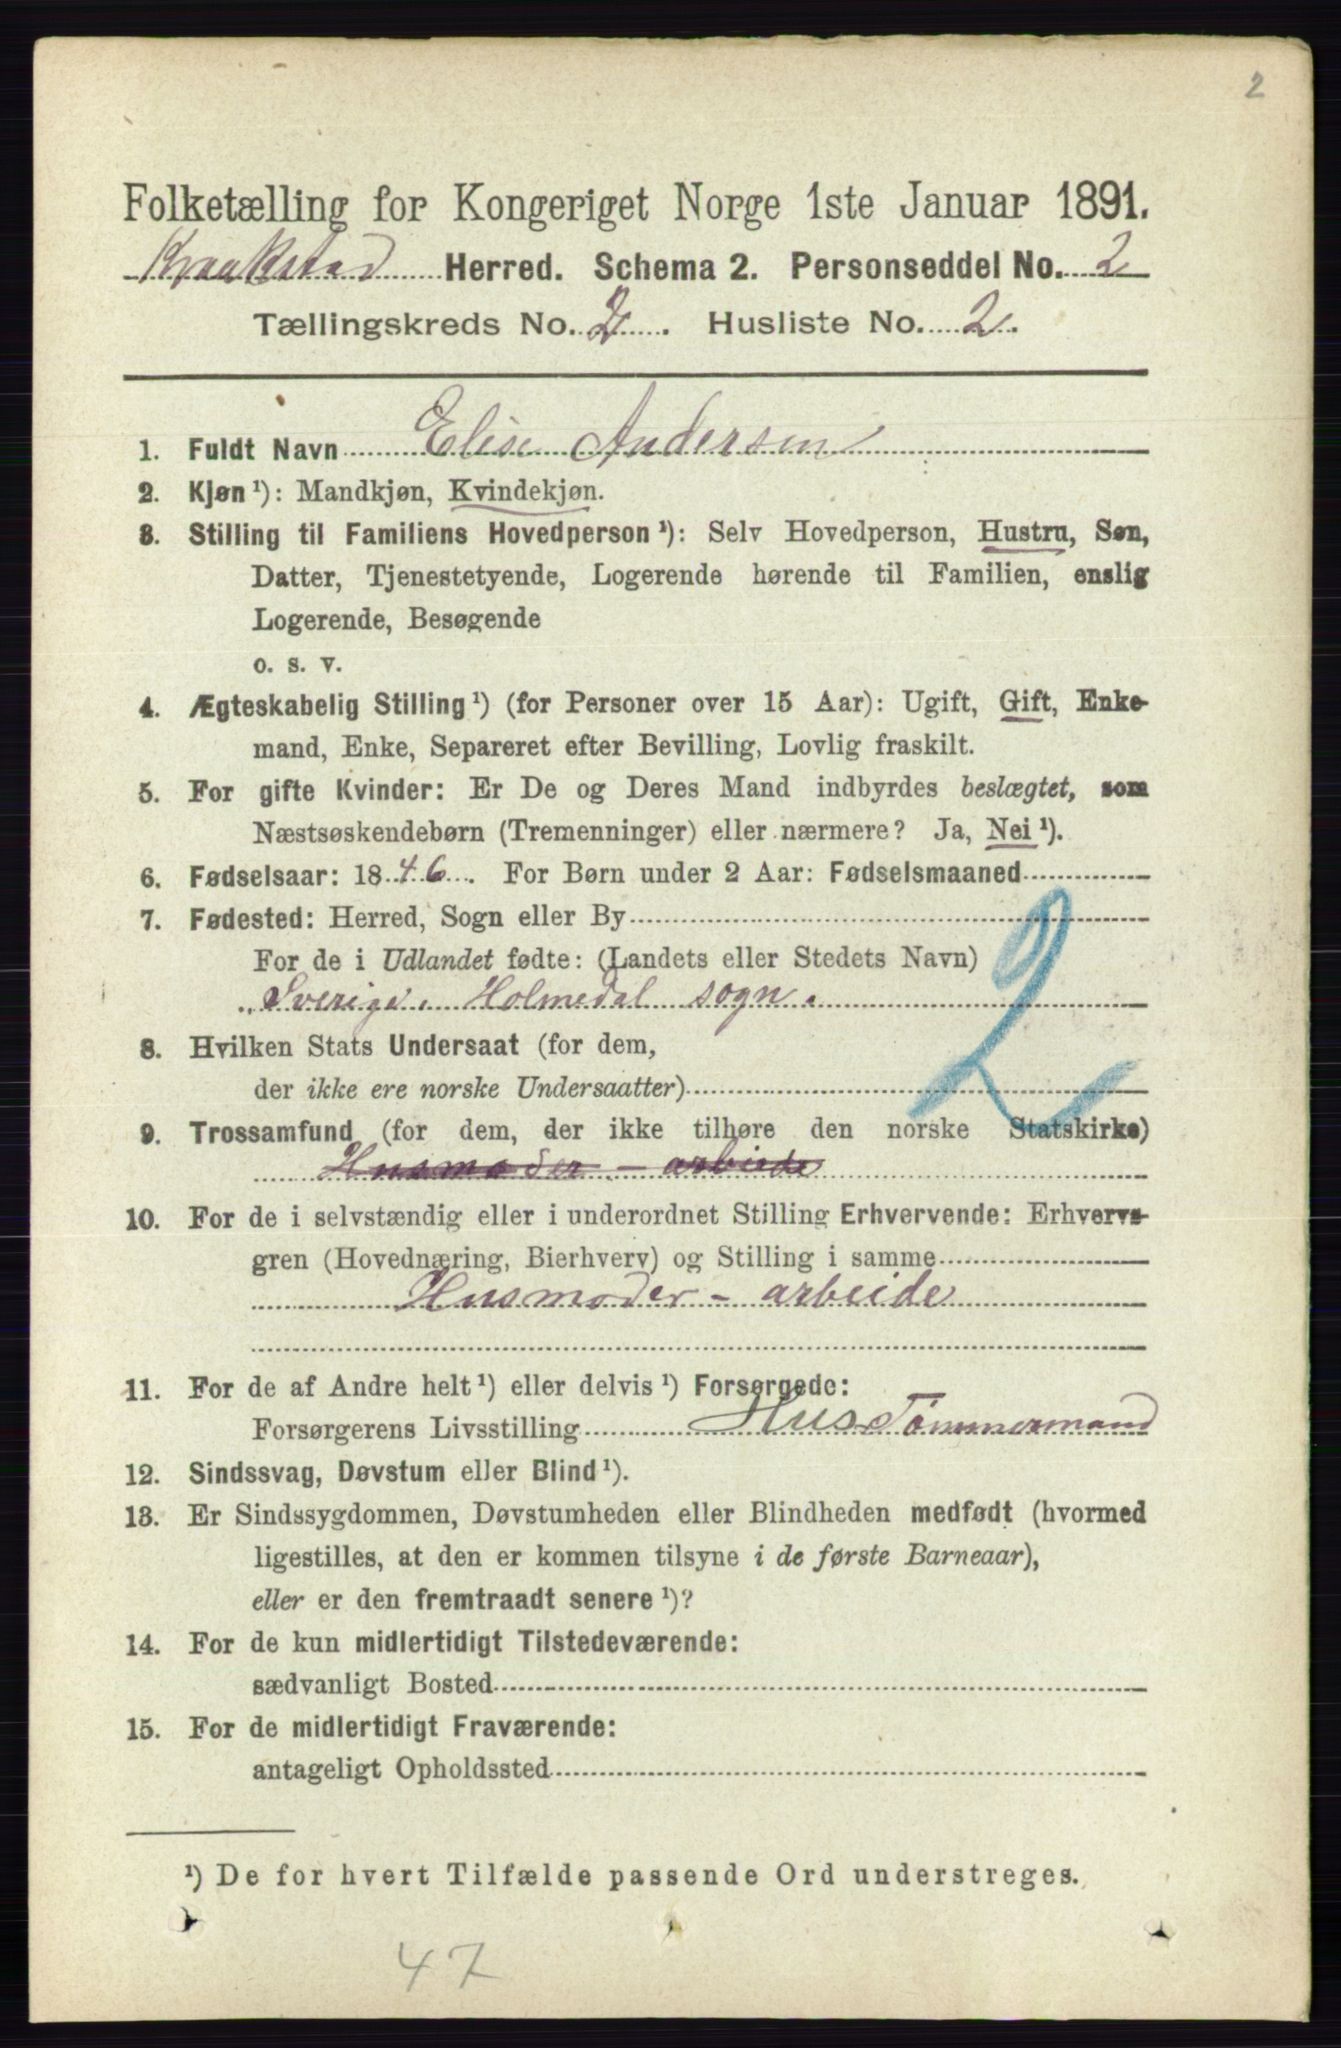 2
Folketælling for Kongeriget Norge 1ste Januar 1891.
Kraakstad Herred. Schema 2. Personseddel No. 2
Tællingskreds No. 2. Husliste No. 2.
1. Fuldt Navn Elise Andersen
2. Kjøn ¹): Mandkjøn, Kvindekjøn.
3. Stilling til Familiens Hovedperson ¹): Selv Hovedperson, Hustru, Søn,
Datter, Tjenestetyende, Logerende hørende til Familien, enslig
Logerende, Besøgende
o. s. v.
4. Ægteskabelig Stilling ¹) (for Personer over 15 Aar): Ugift, Gift, Enke-
mand, Enke, Separeret efter Bevilling, Lovlig fraskilt.
5. For gifte Kvinder: Er De og Deres Mand indbyrdes beslægtet, som
Næstsøskendebørn (Tremenninger) eller nærmere? Ja, Nei ¹).
6. Fødselsaar: 1846. For Børn under 2 Aar: Fødselsmaaned
7. Fødested: Herred, Sogn eller By
For de i Udlandet fødte: (Landets eller Stedets Navn)
Sverige. Holmedal sogn.
2
8. Hvilken Stats Undersaat (for dem,
der ikke ere norske Undersaatter)
9. Trossamfund (for dem, der ikke tilhøre den norske Statskirke)
Husmoder - arbeide
10. For de i selvstændig eller i underordnet Stilling Erhvervende: Erhvervs-
gren (Hovednæring, Bierhverv) og Stilling i samme
Husmoder - arbeide
11. For de af Andre helt ¹) eller delvis ¹) Forsørgede:
Forsørgerens Livsstilling Hus Tømmermand
12. Sindssvag, Døvstum eller Blind ¹).
13. Er Sindssygdommen, Døvstumheden eller Blindheden medfødt (hvormed
ligestilles, at den er kommen tilsyne i de første Barneaar),
eller er den fremtraadt senere ¹)?
14. For de kun midlertidigt Tilstedeværende:
sædvanligt Bosted
15. For de midlertidigt Fraværende:
antageligt Opholdssted
¹) De for hvert Tilfælde passende Ord understreges.
47